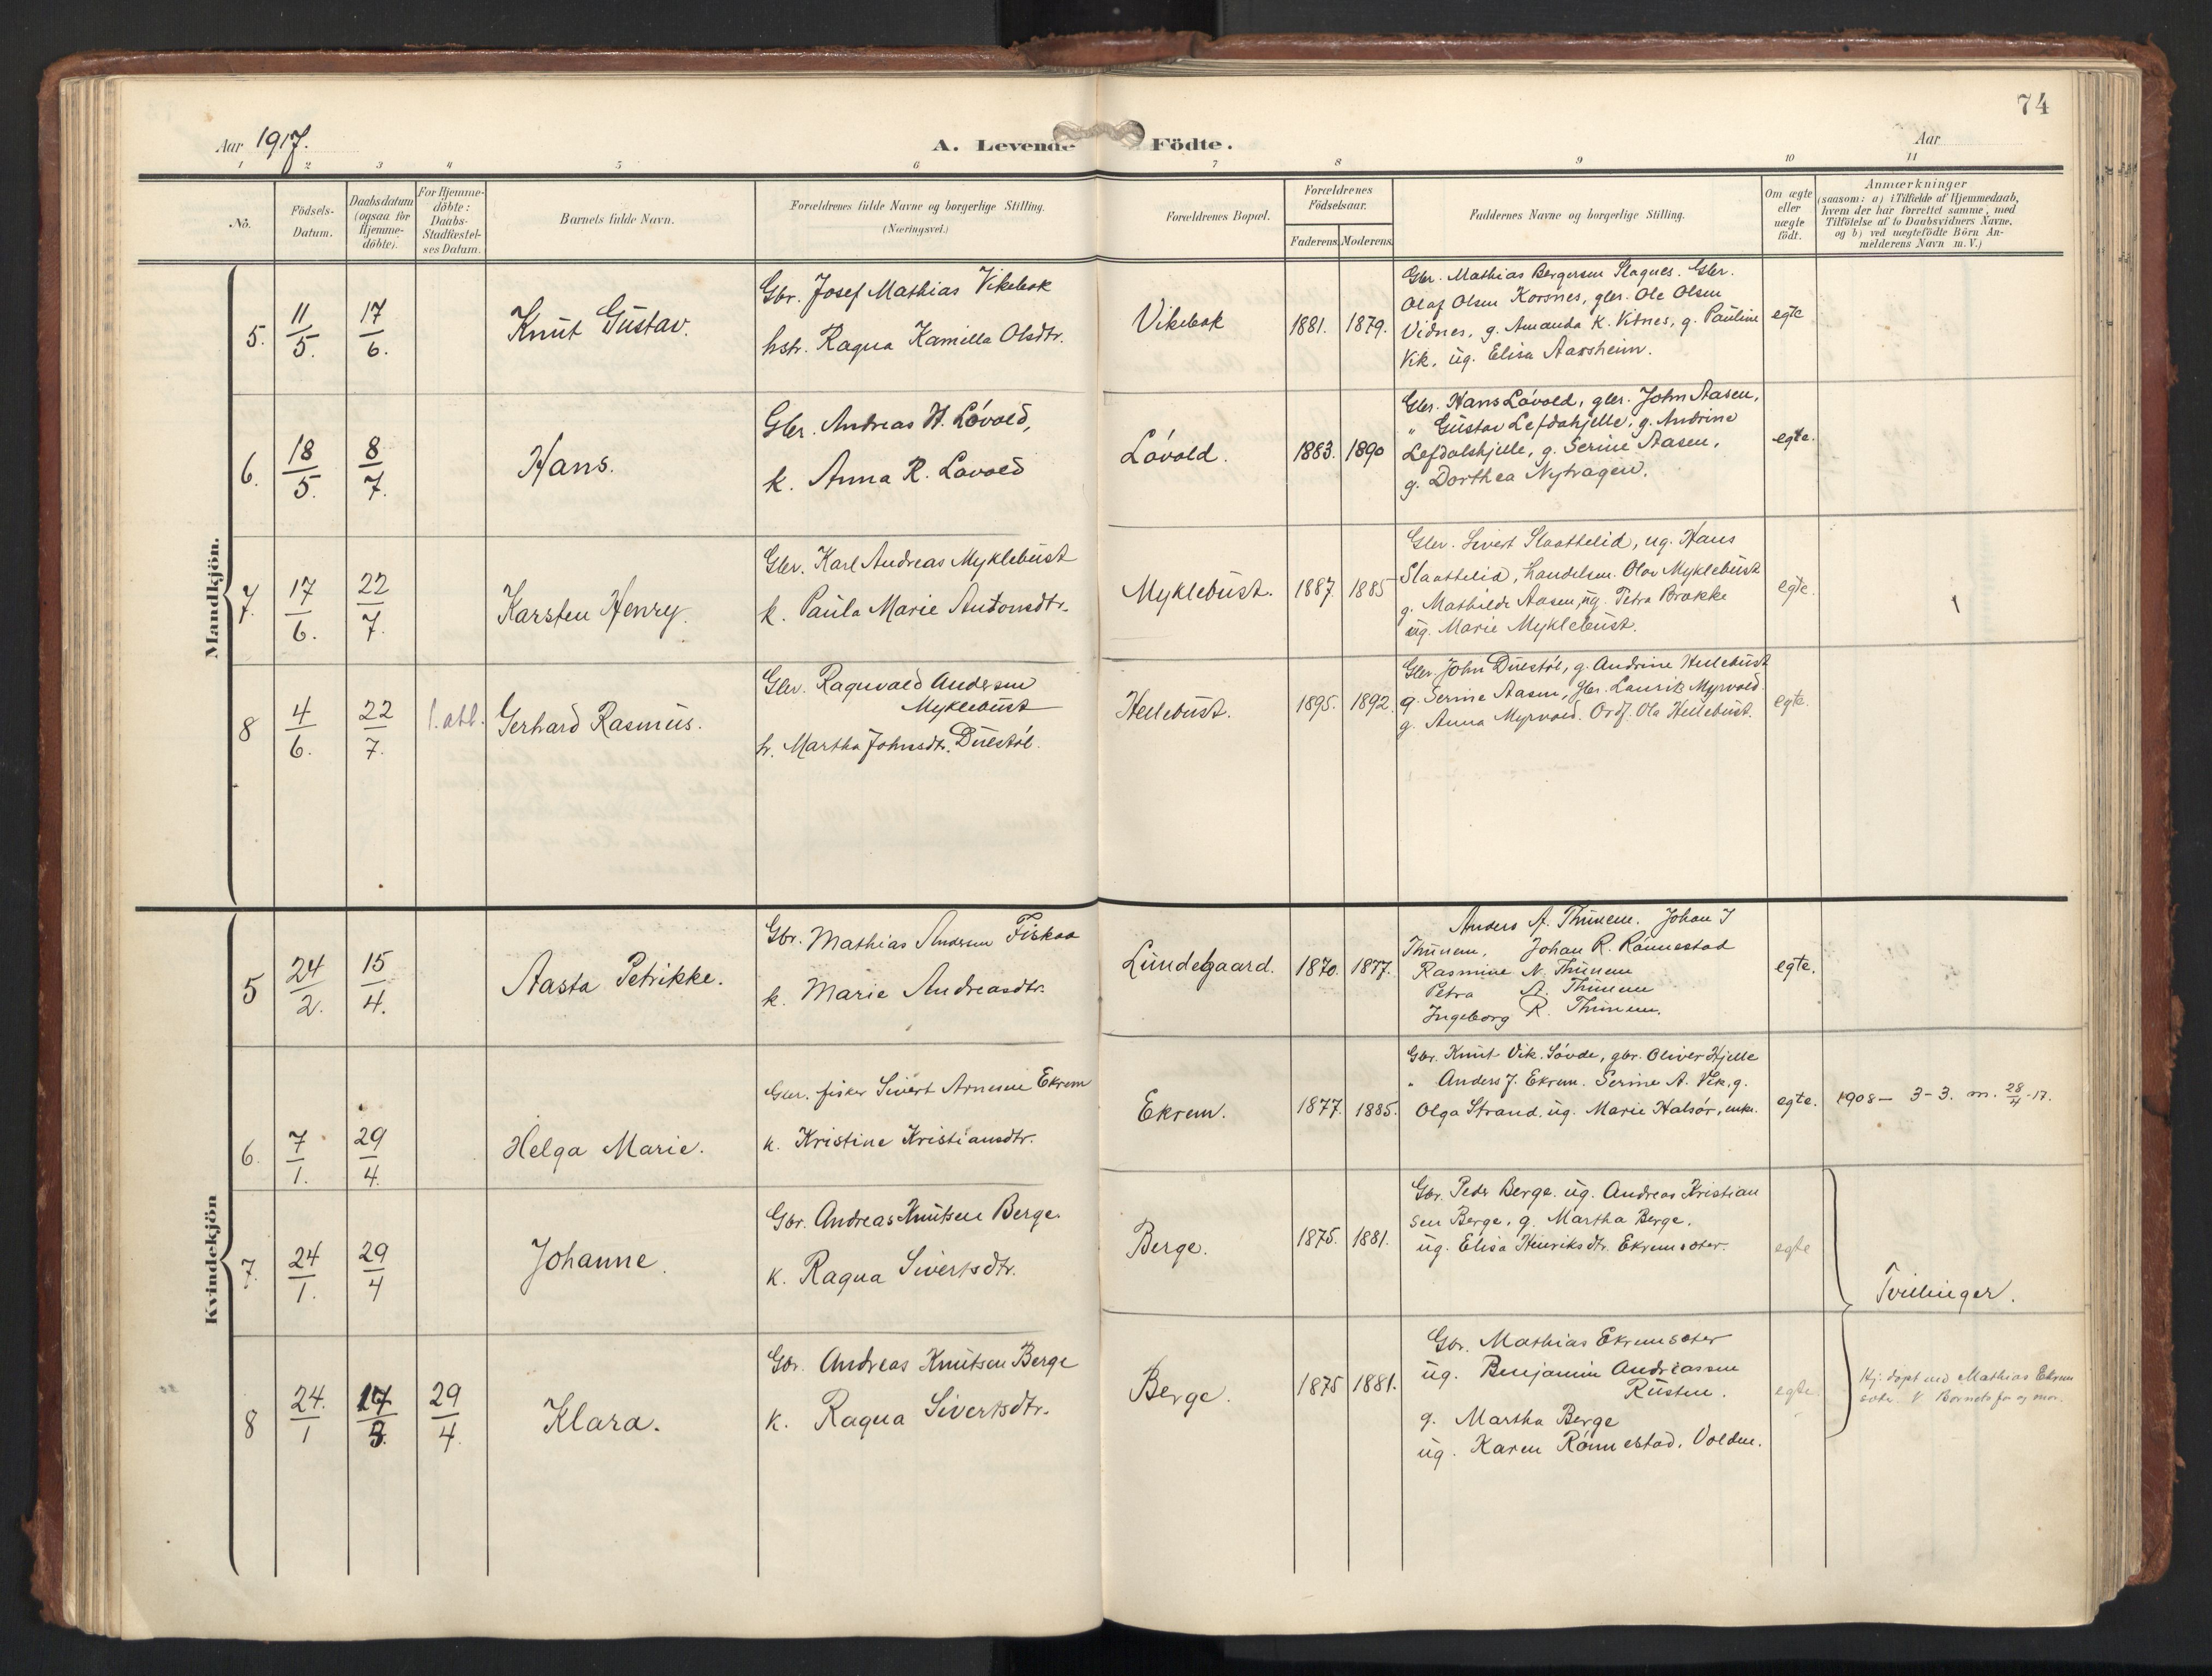 74
Aar 1917.
A. Levende Födte.
Aar
1 2 3 4 5 6 7 8 9 10 11
No.
Födsels-
Datum.
Daabsdatum
(ogsaa for
Hjemme-
döbte).
For Hjemme-
döbte:
Daabs-
Stadfæstel-
ses Datum.
Barnets fulde Navn.
Forældrenes fulde Navne og borgerlige Stilling.
(Næringsvei.)
Forældrenes Bopæl.
Forældrenes
Födselsaar.
Faderens. Moderens.
Faddernes Navne og borgerlige Stilling.
Om ægte
eller
uægte
födt.
Anmærkninger
(saasom: a) i Tilfælde af Hjemmedaab,
hvem der har forrettet samme, med
Tilföielse af to Daabsvidners Navne,
og b) ved uægtefödte Börn An-
melderens Navn m. V.)
Mandkjön.
5. 11/5. 17/6. Knut Gustav.
Gbr. Josef Mathias Vikebak
hstr. Ragna Kamilla Olsdtr.
Vikebak 1881. 1879.
Gbr. Mathias Bergersen Slagnes. Gbr.
Olaf Olsen Korsnes, gbr. Ole Olsen
Vidnes, g. Amanda K. Vitnes, g. Pauline
Vik, ug. Elisa Aarsheim.
egte
6. 18/5. 8/7. Hans.
Gbr. Andreas H. Lóvold,
k. Anna R. Lovold
Lóvold. 1883. 1890
Gbr. Hans Lóvold, gbr. John Aasen,
" Gustav Lefdahjelle, g. Andrine
Lefdalshjelle, g. Serine Aasen,
g. Dorthea Nytragen.
egte.
7. 17/6. 22/7. Karsten Henry.
Gbr. Karl Andreas Myklebust
k. Paula Marie Antonsdtr.
Myklebust. 1887. 1885
Gbr. Sivert Slaattelid, ug. Hans
Slaattelid, handelsm. Olav Myklebust
g. Mathilde Aasen, ug. Petra Brakke
ug. Marie Myklebust.
egte.
8 4/6. 22/7. Gerhard Rasmus.
Gbr. Ragnvald Andersen
Myklebust
h. Martha Johnsdtr. Duestól.
Hellebust. 1895. 1892.
Gbr. John Duestól, g. Andrine Hellebust
g. Serine Aasen, Gbr. Laurits Myrvold.
g. Anna Myrvold. Ordf. Ola Hellebust.
egte.
Kvindekjön
5 24/2. 15/4. Aasta Petrikke.
Gbr. Mathias Andersen Fiskaa
k. Marie Andreasdtr.
Lundegaard. 1870. 1877.
Anders A. Thunem. Johan J
Thunem, Johan R. Rónnestad
Rasmine N. Thunem
Petra A. Thunem
Ingeborg R. Thunem.
egte.
6. 7/1. 29/4. Helga Marie.
Gbr. fisker Sivert Arnesen Ekrem
k. Kristine Kristiansdtr.
Ekrem. 1877. 1885.
Gbr. Knut Vik. Sóvde, gbr. Oliver Hjelle
" Anders J. Ekrem. Serine A. Vik, g.
Olga Strand, ug. Marie Halsór, enke.
egte. 1908 – 3-3. m. 28/4-17.
7. 24/1. 29/4 Johanne.
Gbr. Andreas Knutsen Berge.
k. Ragna Sivertsdtr.
Berge. 1875. 1881.
Gbr. Peder Berge. ug. Andreas Kristian
sen Berge. g. Martha Berge.
ug. Elisa Henriksdtr. Ekremsæter.
egte
Tvillinger.
8 24./1 17/3. 29/4 Klara.
Gbr. Andreas Knutsen Berge
k. Ragna Sivertsdtr.
Berge. 1875 1881.
Gbr. Mathias Ekremsæter
ug. Benjamin Andreassen
Rusten.
g. Martha Berge
ug. Karen Rónnestad, Volden.
egte
Hj. dópt ved Mathias Ekrem
sæter. V Barnets far og mor.